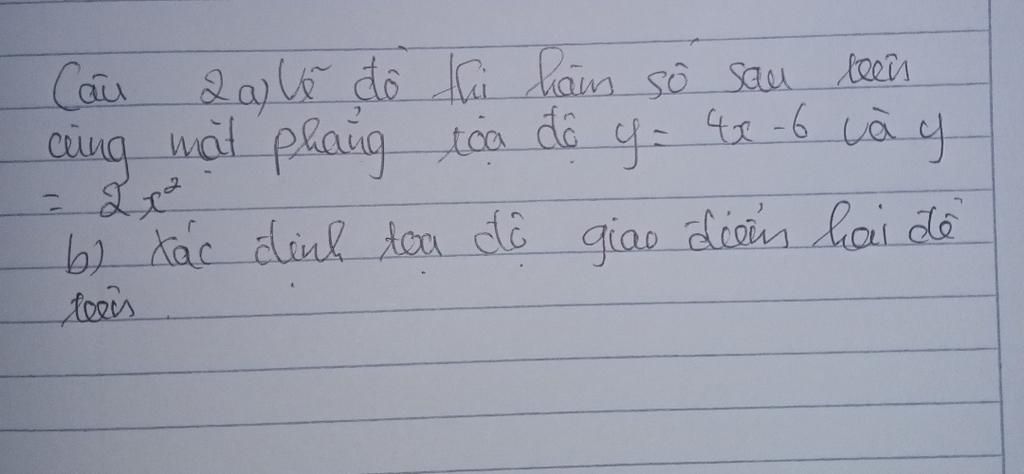 Câu 2a) Vẽ đồ thị hàm số sau trên
cùng mặt phẳng tọa độ y = 4x - 6 và y
= 2x²
b) Xác định tọa độ giao điểm hai đồ
trên.